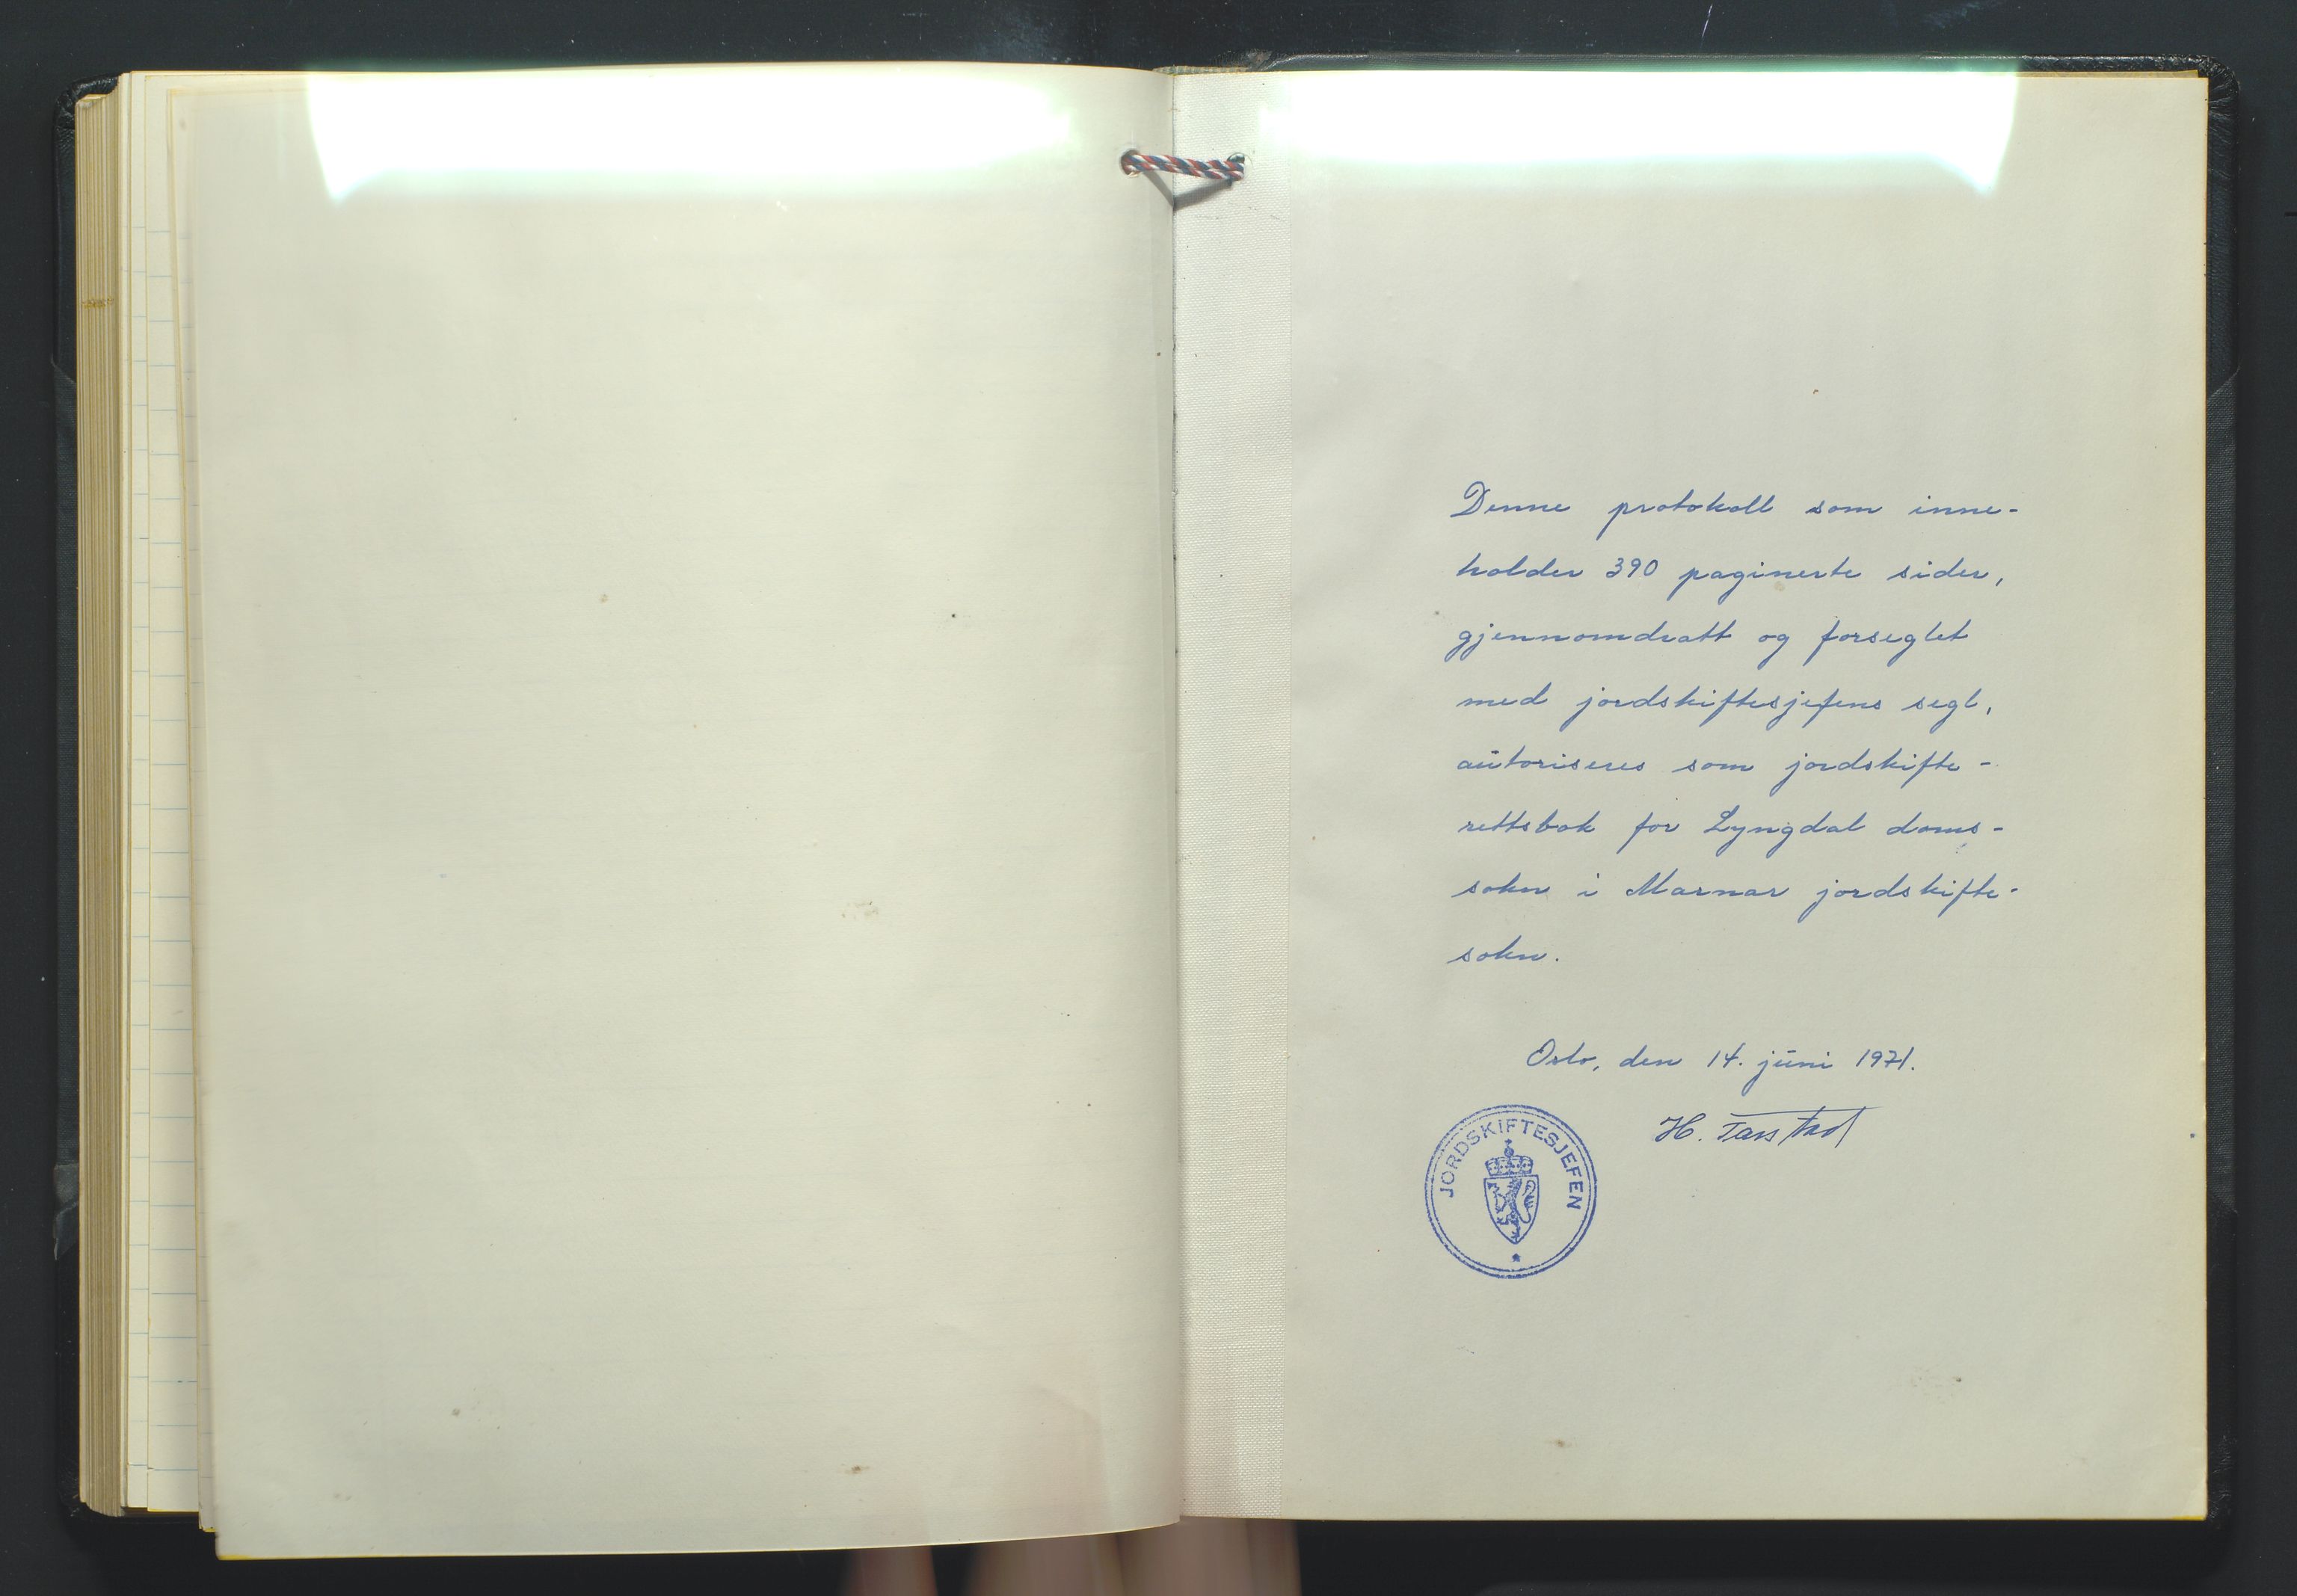 Denne protokoll som inne-
holder 390 paginerte sider,
gjennomdratt og forseglet
med jordskiftesjefens segl,
autoriseres som jordskifte-
rettsbok for Lyngdal doms-
sokn i Marnar jordskifte-
sokn.
Oslo, den 14. juni 1971.
H.
JORDSKIFTESJEFEN